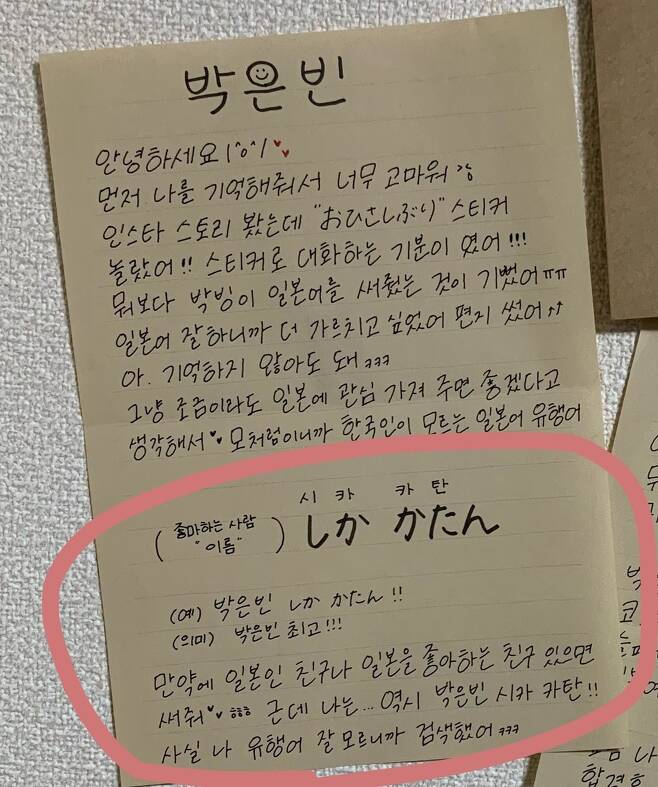 박은빈
안녕하세요 \^o^/♥♥
먼저 나를 기억해줘서 너무 고마워
인스타 스토리 봤는데 "おひさしぶり" 스티커
놀랐어!! 스티커로 대화하는 기분이 였어!!!
뭐보다 박빙이 일본어를 써줬는 것이 기뻤어ㅠㅠ
일본어 잘하니까 더 가르치고 싶었어 편지 썼어↑↑
아. 기억하지 않아도 돼ㅋㅋㅋ
그냥 조금이라도 일본에 관심 가져 주면 좋겠다고
생각해서♥♥ 모처럼이니까 한국인이 모르는 일본어 유행어
시 카 카 탄
(좋아하는 사람 "이름") しか かたん
(예) 박은빈 しか かたん!!
(의미) 박은빈 최고!!!
만약에 일본인 친구나 일본을 좋아하는 친구 있으면
써줘♥♥ ㅎㅎㅎ 근데 나는... 역시 박은빈 시카 카탄!!
사실 나 유행어 잘 모르니까 검색했어ㅋㅋㅋ